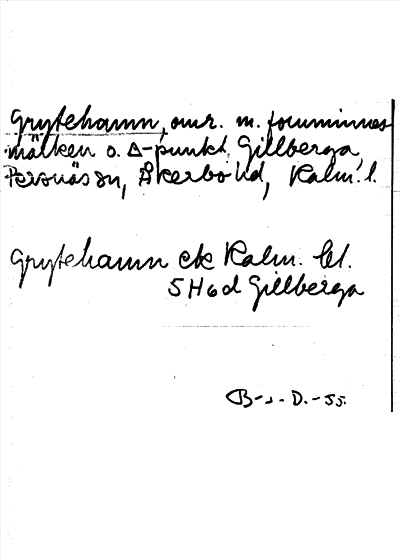 Grytehamn, omr. m. fornminnes
märken o. Δ-punkt, Gillberga,
Persnäs sn, Åkerbo hd, Kalm. l.
Grytehamn ek Kalm. bl.
5H6d Gillberga